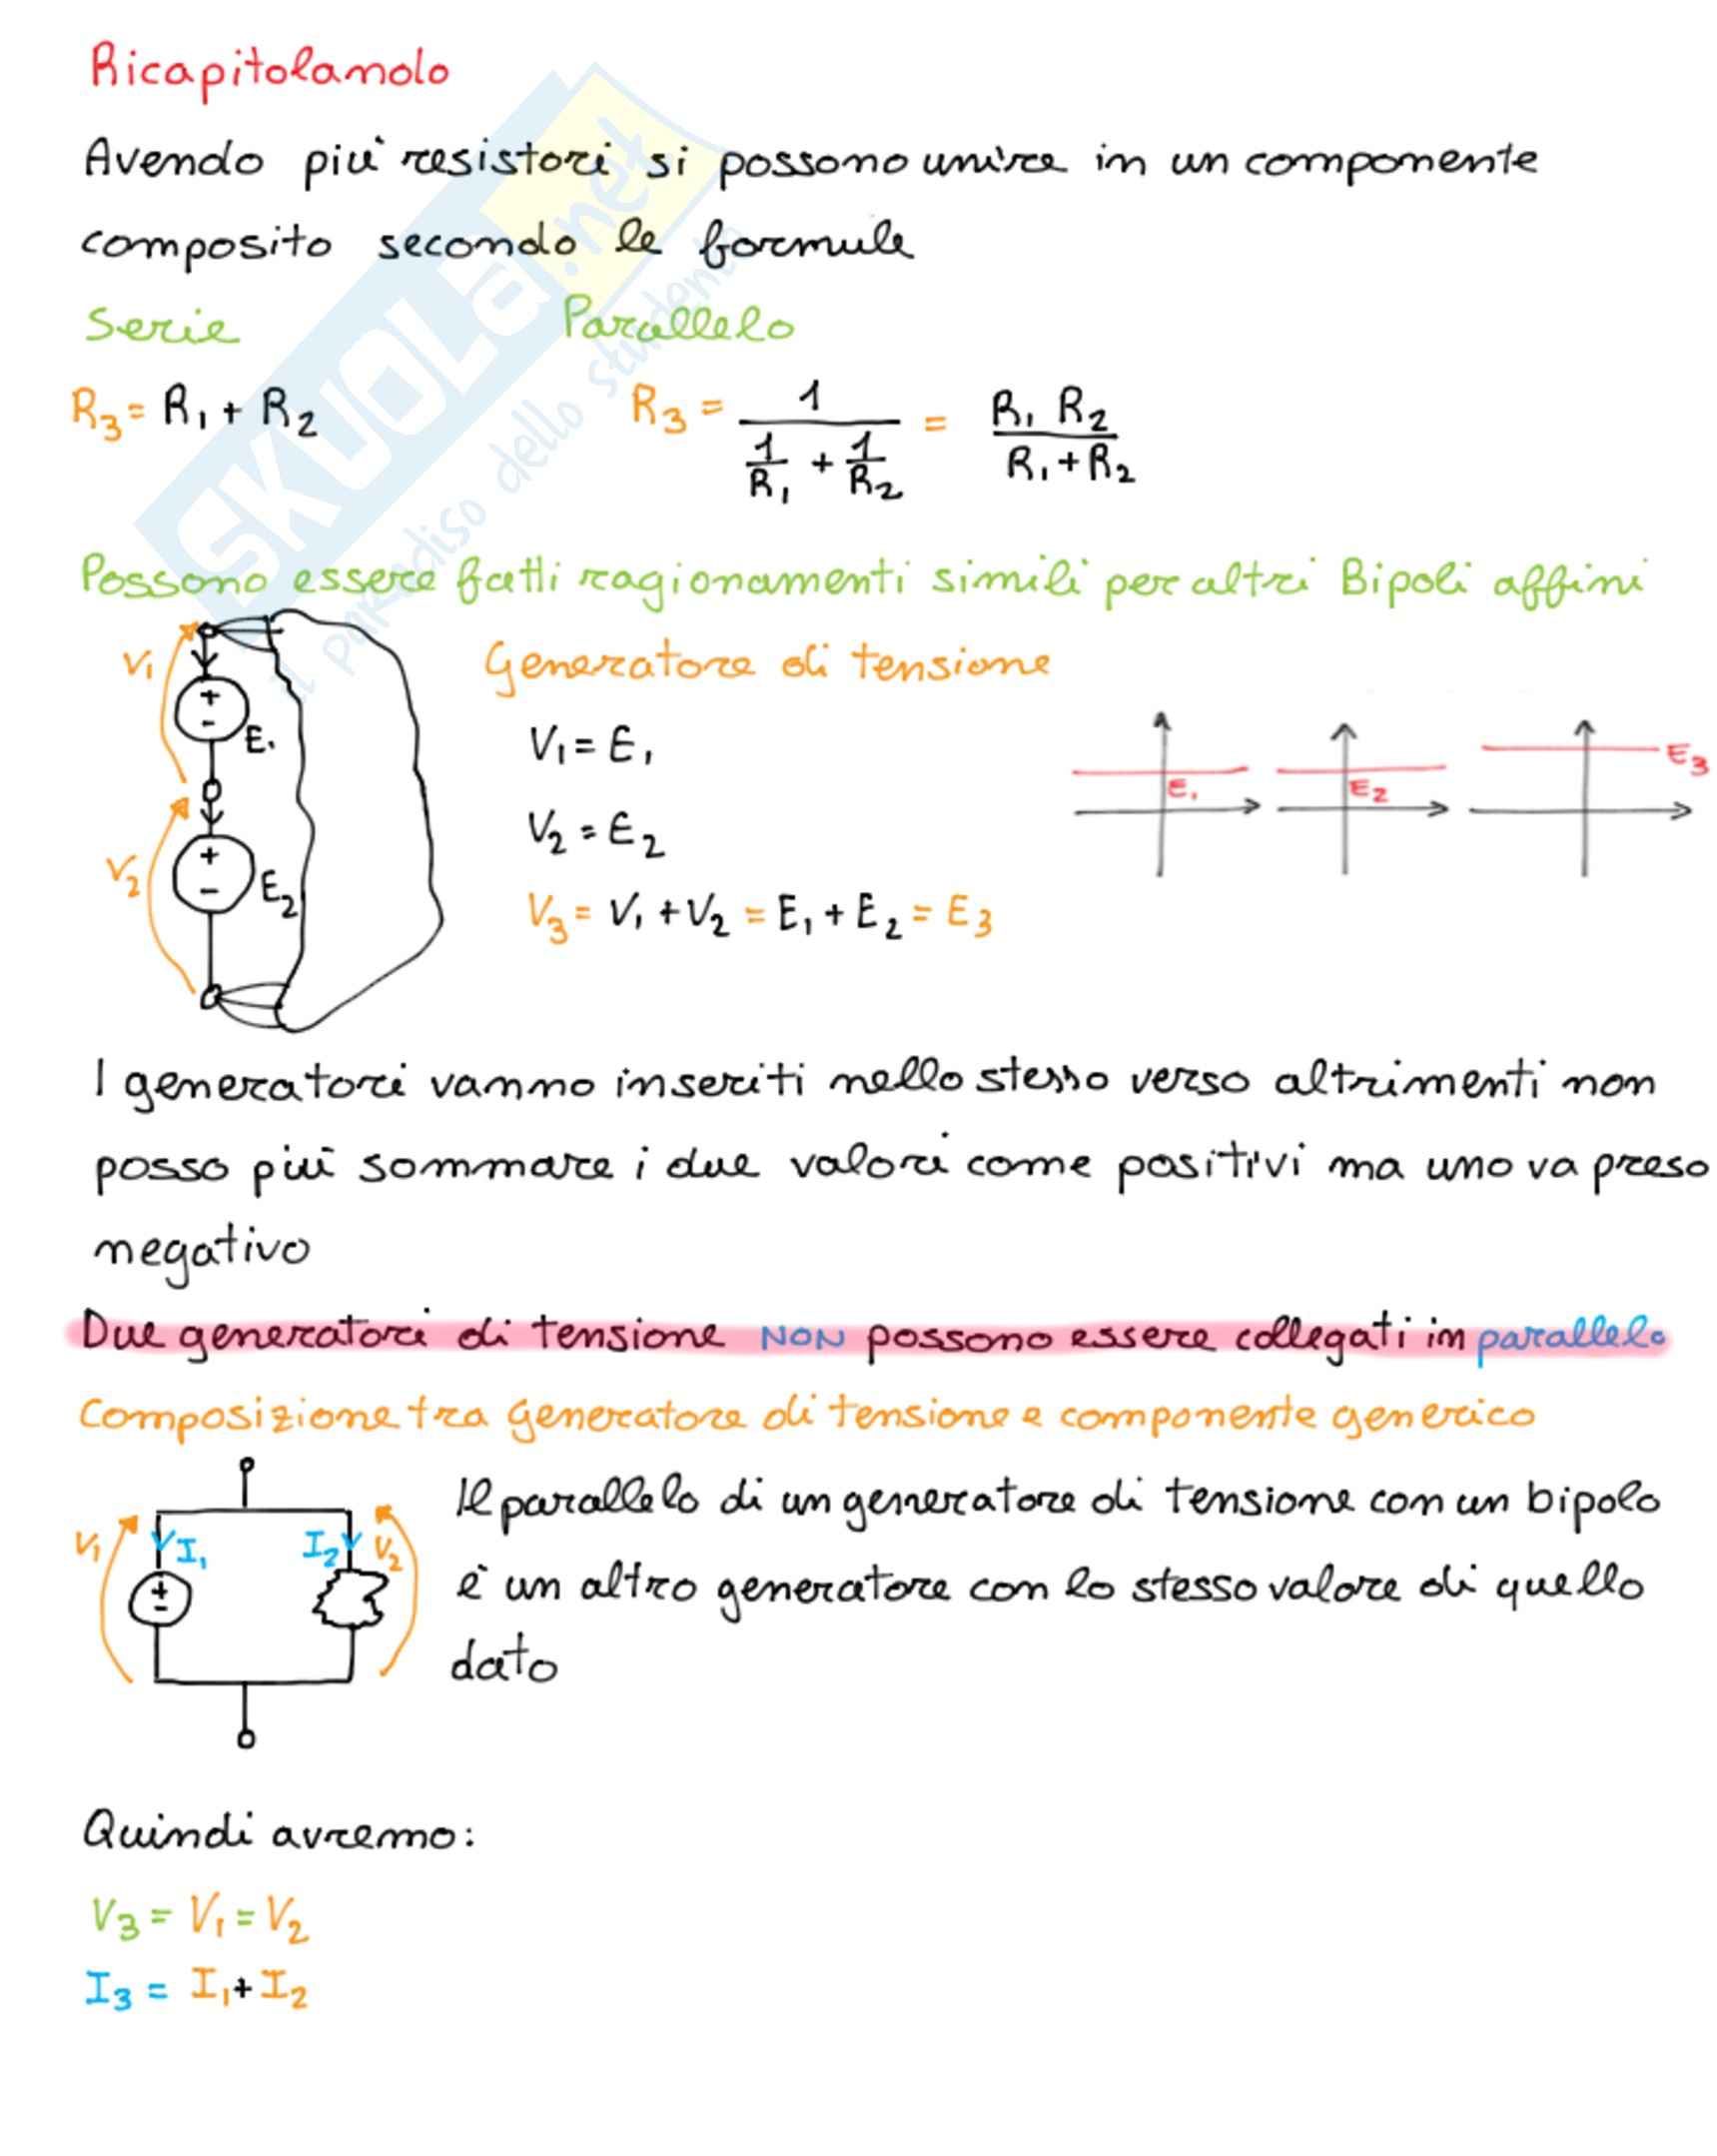 Ricapitolando
Avendo più resistori si possono unire in un componente
composito secondo le formule
Serie Parallelo
R3 = R1 + R2 R3 = 1 / (1/R1 + 1/R2) = R1 R2 / (R1 + R2)
Possono essere fatti ragionamenti simili per altri Bipoli affini
Generatore di tensione
V1
+
-
E1
V2
+
-
E2
V1 = E1
V2 = E2
V3 = V1 + V2 = E1 + E2 = E3
E1
E2
E3
I generatori vanno inseriti nello stesso verso altrimenti non
posso più sommare i due valori come positivi ma uno va preso
negativo
Due generatori di tensione NON possono essere collegati in parallelo
Composizione tra generatore di tensione e componente generico
V1
I1
I2
V2
+
-
Il parallelo di un generatore di tensione con un bipolo
è un altro generatore con lo stesso valore di quello
dato
Quindi avremo:
V3 = V1 = V2
I3 = I1 + I2
SKUOLa.net
il paradiso dello studente